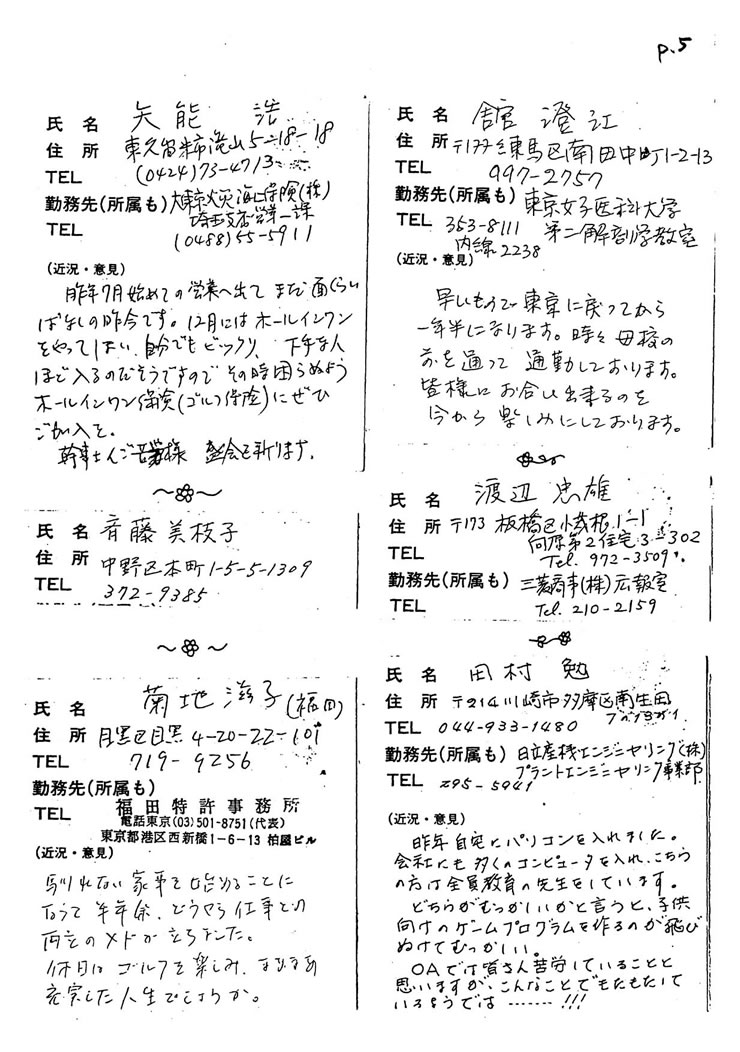 p.5
氏名 矢能 浩
住所 東久留米市滝山5-18-18
TEL (0424)73-4713
勤務先(所属も) 大東京火災海上保険(株)
埼玉支店営業一課
TEL (0488)55-5911
(近況・意見)
昨年7月始めての営業へ出て まだ面くらい
ばなしの昨今です。12月には ホールインワン
をやってしまい 自分でも ビックリ、下手な人
ほど入るのだそうですので その時困らぬよう
ホールインワン保険(ゴルフ保険)にぜひ
ご加入を。
幹事さんご苦労様 盛会を祈ります.
氏名 斉藤美枝子
住所 中野区本町1-5-5-1309
TEL 372-9385
氏名 菊地滋子(福田)
住所 目黒区目黒4-20-22-101
TEL 719-9256
勤務先(所属も)
TEL 福田特許事務所
電話東京(03)501-8751(代表)
東京都港区西新橋1-6-13 柏屋ビル
(近況・意見)
馴れない家事を始めることに
なって半年余、どうやら仕事との
両立のメドが立ちました。
休日は ゴルフを楽しみ、まあまあ
充実した人生でしょうか。
氏名 舘 澄江
住所 〒177 練馬区南田中町1-2-13
TEL 997-2757
勤務先(所属も) 東京女子医科大学
TEL 353-8111 第二解剖学教室
内線2238
(近況・意見)
早いもので東京に戻ってから
一年半になります。時々母校の
前を通って 通勤しております。
皆様に お会い出来るのを
今から 楽しみにしております。
氏名 渡辺忠雄
住所 〒173 板橋区小茂根1-1
向原第2住宅3-302
TEL Tel. 972-3509
勤務先(所属も) 三菱商事(株)広報室
TEL Tel. 210-2159
氏名 田村 勉
住所 〒214 川崎市多摩区南生田
TEL 044-933-1480
勤務先(所属も) 日立産機エンジニヤリング(株)
プラントエンジニヤリング事業部
TEL 295-5941
(近況・意見)
昨年自宅にパソコンを入れました。
会社にも多くのコンピュータを入れ、こちら
の方は全員教育の先生をしています。
どちらがむつかしいかと言うと、子供
向けのゲームプログラムを作るのが飛び
ぬけてむつかしい。
OAでは皆さん苦労していることと
思いますが、こんなことでもたもたして
いるようでは………!!!